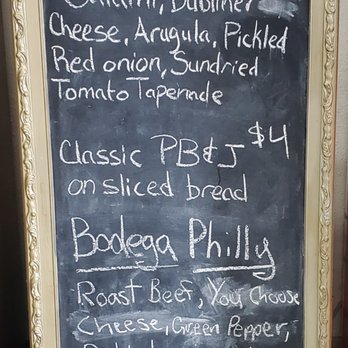 Salami, Dubliner
Cheese, Arugula, Pickled
Red onion, Sundried
Tomato Tapenade
Classic PB&J $4
on sliced bread
Bodega Philly
Roast Beef, You Choose
Cheese, Green Pepper,